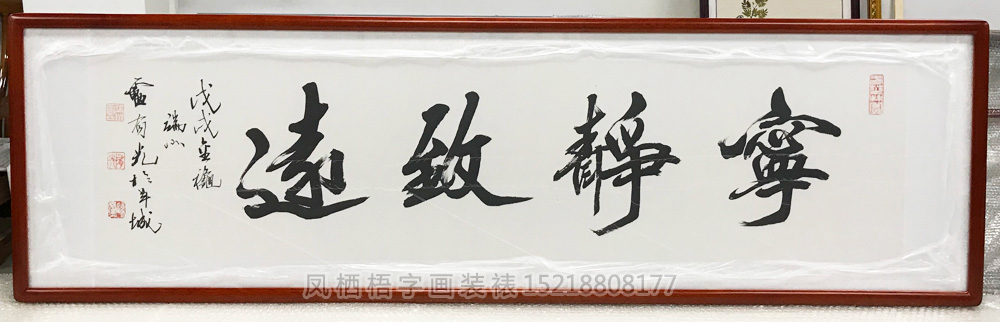 寧靜致遠
戊戌金穐
瑞州
雷有光於羊城
凤栖梧字画装裱15218808177